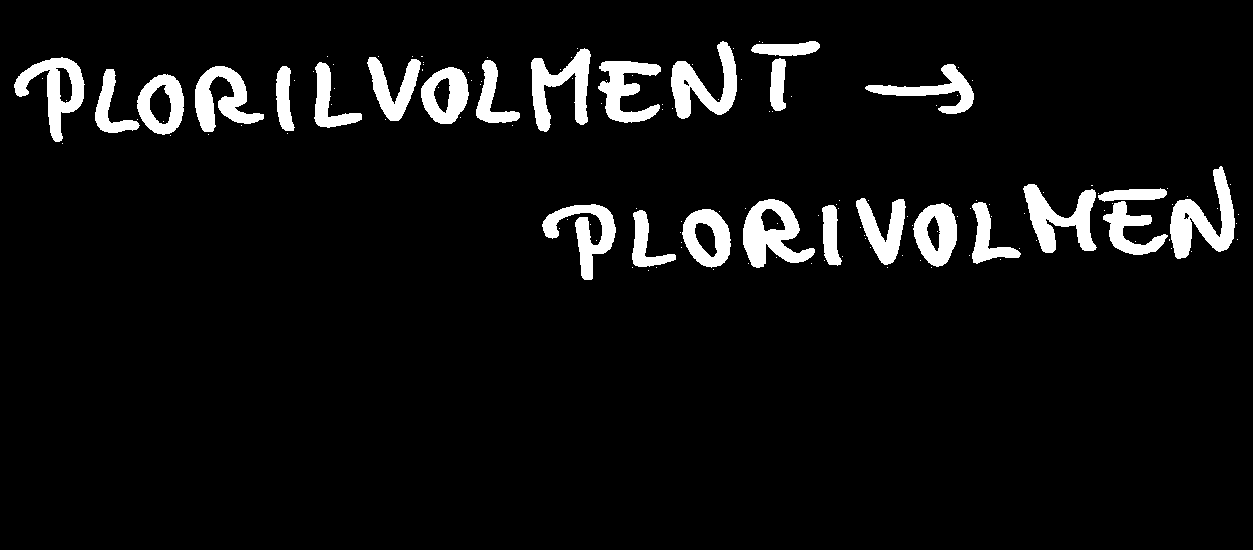 PLORILVOLMENT →
PLORIVOLMEN